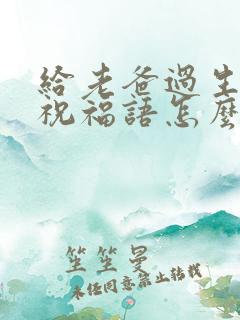 給老爸過生
祝福語怎麼
笙笙曼
未經同意禁止轉載